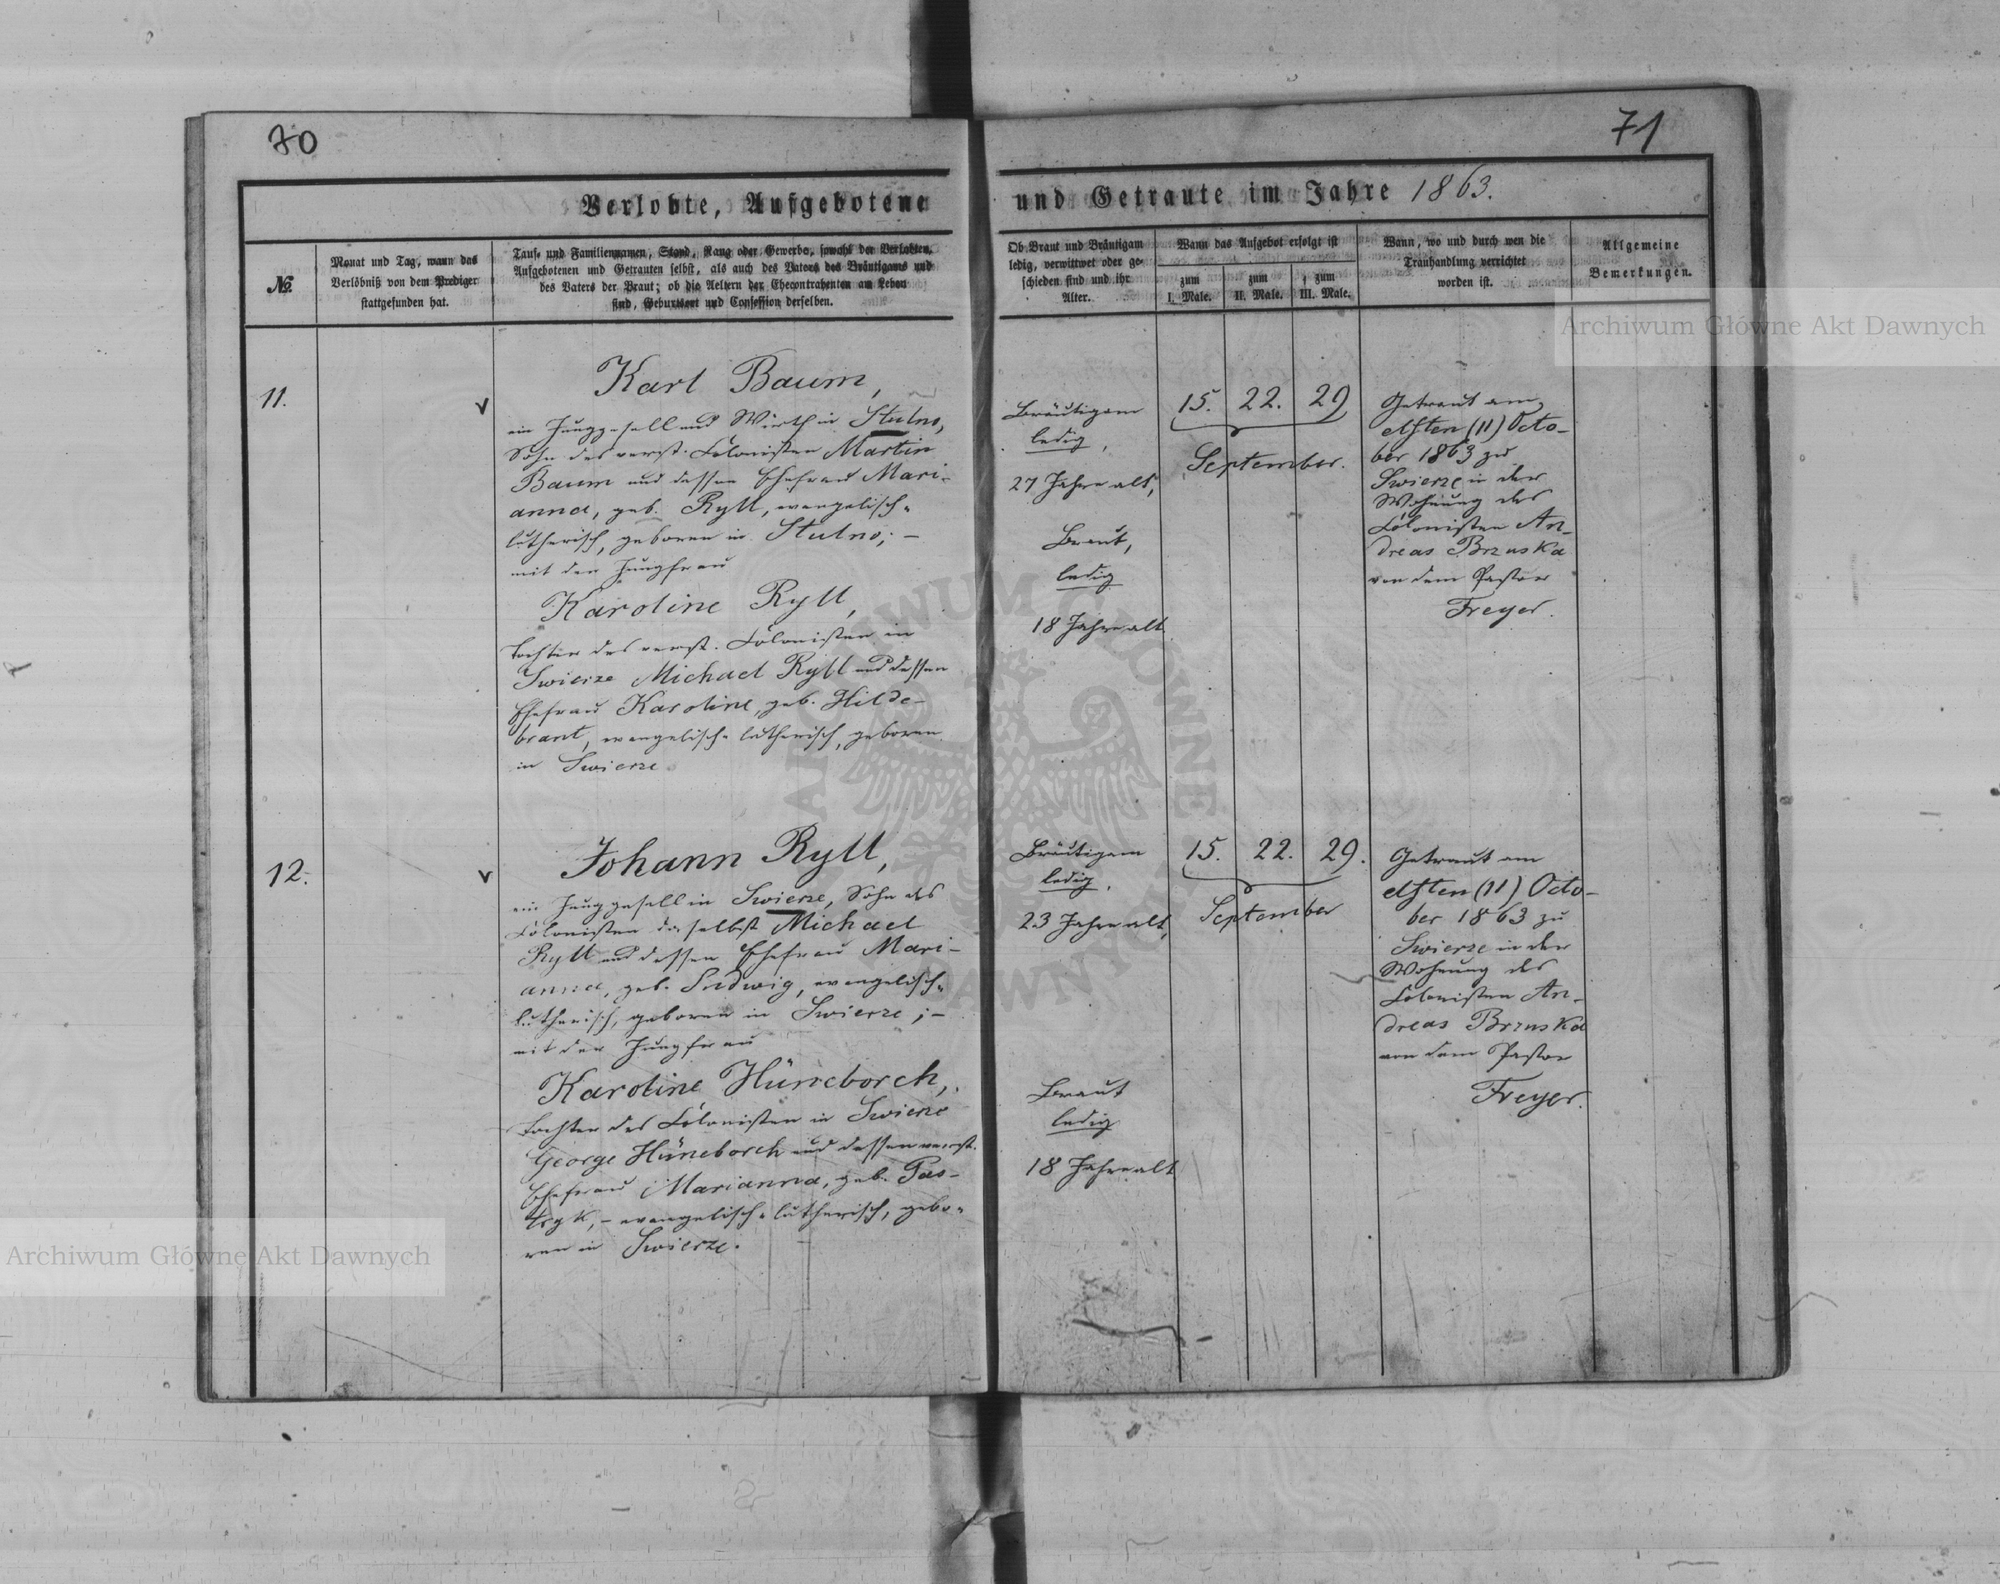 70
71
Verlobte, Aufgebotene
und Getraute im Jahre 1863.
№
Monat und Tag, wann das
Verlöbniß von dem Prediger
stattgefunden hat.
Tauf- und Familiennamen, Stand, Rang oder Gewerbe, sowohl der Verlobten,
Aufgebotenen und Getrauten selbst, als auch des Vaters des Bräutigams und
des Vaters der Braut; ob die Aeltern der Ehecontrahenten am Leben
sind, Geburtsort und Confession derselben.
Ob Braut und Bräutigam
ledig, verwittwet oder ge-
schieden sind und ihr
Alter.
Wann das Aufgebot erfolgt ist
zum
I. Male.
zum
II. Male.
zum
III. Male.
Wann, wo und durch wen die
Trauhandlung verrichtet
worden ist.
Allgemeine
Bemerkungen.
11.
Karl Baum,
ein Junggesell und Wirth in Stulno,
Sohn des verst. Colonisten Martin
Baum und dessen Ehefrau Mari-
anna, geb. Ryll, evangelisch-
lutherisch, geboren in Stulno; –
mit der Jungfrau
Karoline Ryll,
Tochter des verst. Colonisten in
Swierze Michael Ryll und dessen
Ehefrau Karoline, geb. Hilde-
brant, evangelisch-lutherisch, geboren
in Swierze.
Bräutigam
ledig,
27 Jahre alt,
Braut,
ledig
18 Jahre alt
15. 22. 29
September.
Getraut am
elften (11) Octo-
ber 1863 zu
Swierze in der
Wohnung des
Colonisten An-
dreas Brzuska
von dem Pastor
Freyer.
12.
Johann Ryll,
ein Junggesell in Swierze, Sohn des
Colonisten daselbst Michael
Ryll und dessen Ehefrau Mari-
anna, geb. Ludwig, evangelisch-
lutherisch, geboren in Swierze; –
mit der Jungfrau
Karoline Hüneborch,
Tochter des Colonisten in Swierze
George Hüneborch und dessen verst.
Ehefrau Marianna, geb. Pas-
, – evangelisch-lutherisch, gebo-
ren in Swierze.
Bräutigam
ledig,
23 Jahre alt,
Braut
ledig
18 Jahre alt
15. 22. 29.
September
Getraut am
elften (11) Octo-
ber 1863 zu
Swierze in der
Wohnung des
Colonisten An-
dreas Brzuska
von dem Pastor
Freyer.
Archiwum Główne Akt Dawnych
Archiwum Główne Akt Dawnych
ARCHIWUM GŁÓWNE AKT DAWNYCH